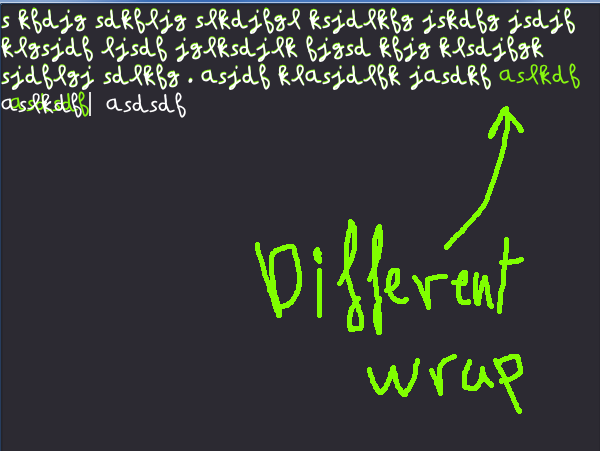 s kfdjg sdkfljg slkdjfgl ksjdlkfg jskdfg jsdjf
klgsjdf ljsdf jglksdjlk fjgsd kfjg klsdjfgk
sjdflgj sdlkfg . asjdf klasjdlfk jasdkf aslkdf
aslkdf asdsdf
Different
wrap